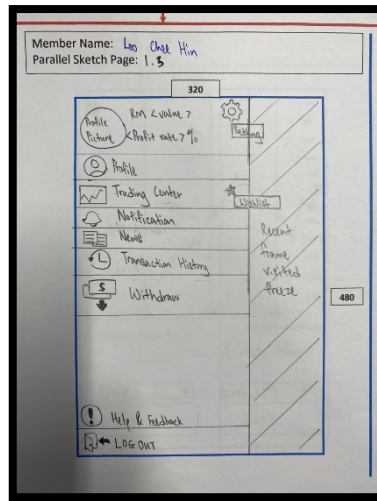 Member Name: Loo Chee Hin
Parallel Sketch Page: 1.3
320
Profile Picture
RM <value>
<Profit rate> %
Setting
Profile
Trading Center
Wishlist
Notification
News
Transaction History
$
Withdraw
Recent
frame
visited
freeze
480
! Help & Feedback
LOG OUT